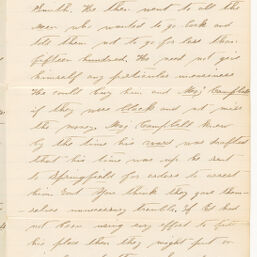 Smith. He then went to all the
men who wanted to go back and
told them not to go for less than
fifteen hundred. He need not give
himself any particular uneasiness
He could buy him and Maj Campbell
if they were black and not miss
the money. Maj Campbell knew
by the time his was drafted
that his time was up he sent
to Springfield for orders to arrest
him but You think they gave them
-selves unnecessary trouble. If he had
not been using every effort to fill
his place then they might put on